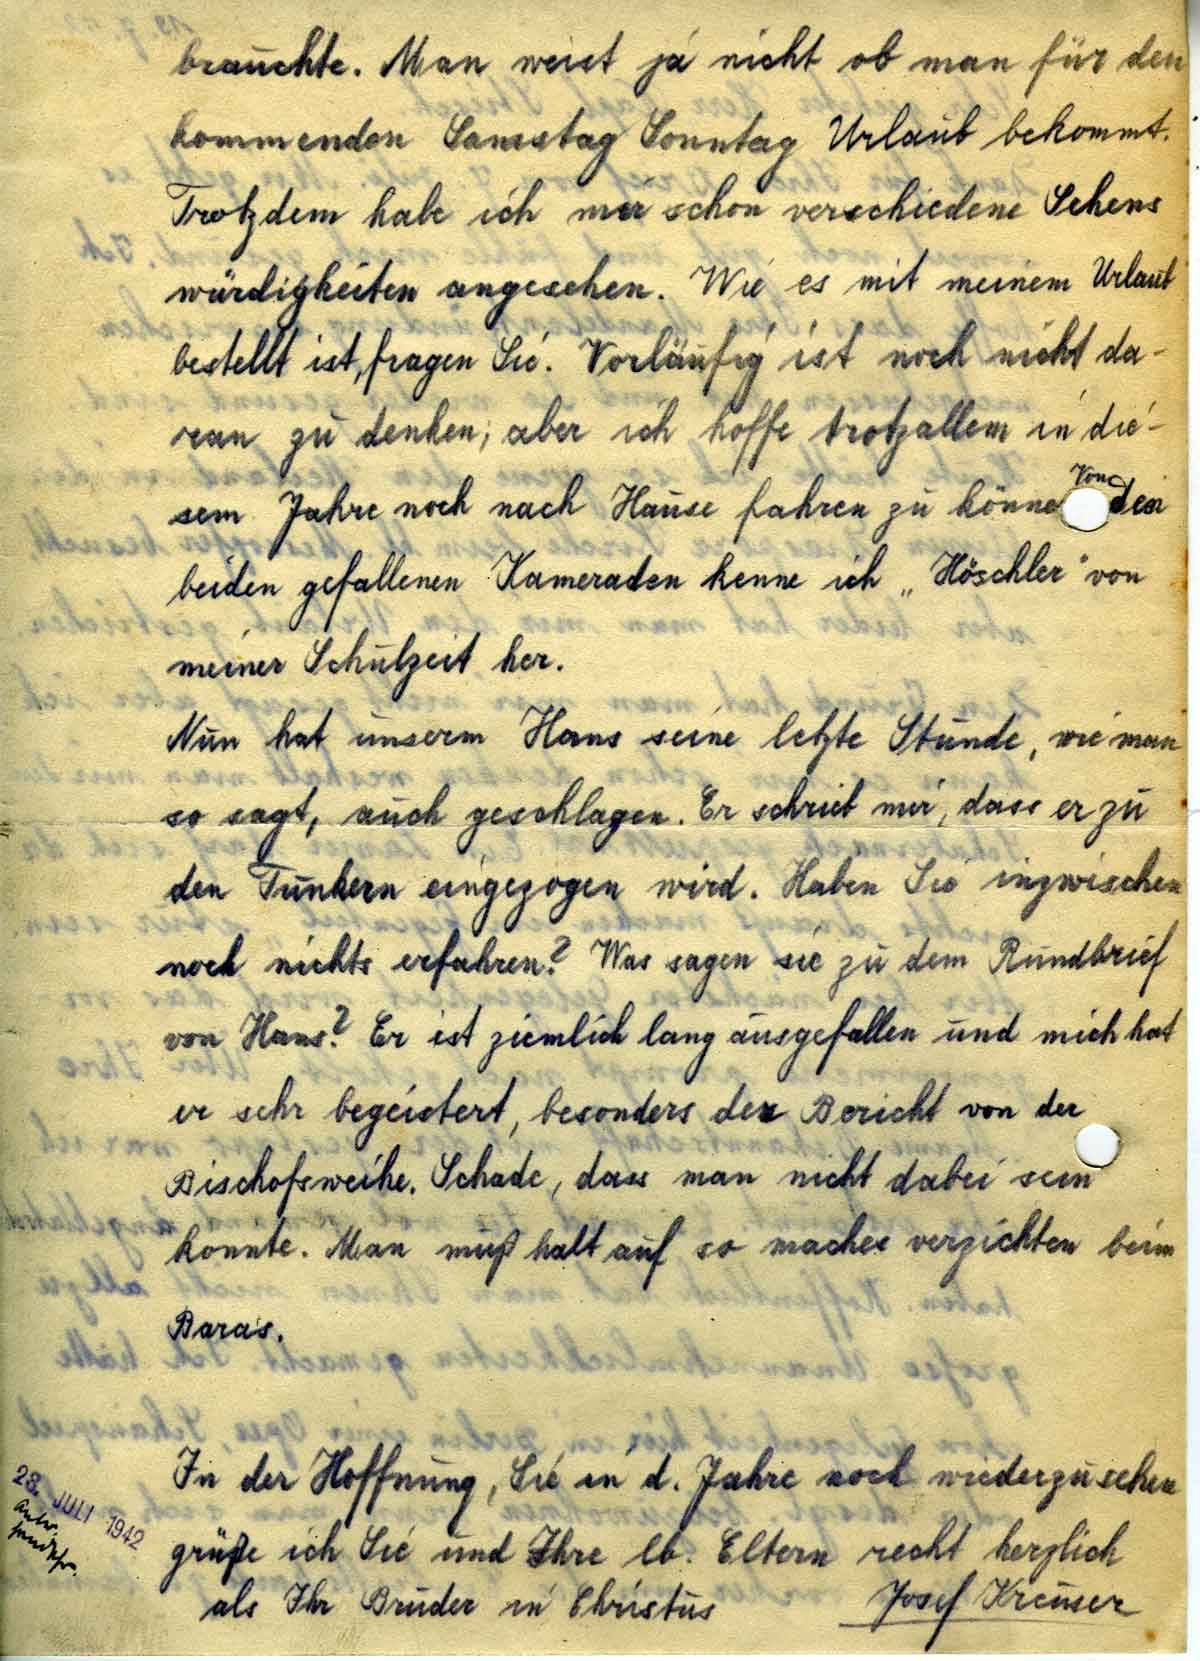 brauchte. Man weist ja nicht ob man für den
kommenden Samstag Sonntag Urlaub bekommt.
Trotzdem habe ich mir schon verschiedene Sehens
würdigkeiten angesehen. Wie es mit meinem Urlaub
bestellt ist, fragen Sie. Vorläufig ist noch nicht da-
ran zu denken; aber ich hoffe trotzallem in die-
sem Jahre noch nach Hause fahren zu könne Von den
beiden gefallenen Kameraden kenne ich „Höschler" von
meiner Schulzeit her.
Nun hat unserm Hans seine letzte Stunde, wie man
so sagt, auch geschlagen. Er schrieb mir, dass er zu
den Funkern eingezogen wird. Haben Sie inzwischen
noch nichts erfahren? Was sagen sie zu dem Rundbrief
von Hans? Er ist ziemlich lang ausgefallen und mich hat
er sehr begeistert, besonders der Bericht von der
Bischofsweihe. Schade, dass man nicht dabei sein
konnte. Man muß halt auf so maches verzichten beim
Baras.
In der Hoffnung, Sie in d. Jahre noch wiederzusehen
grüße ich Sie und Ihre lb. Eltern recht herzlich
als Ihr Bruder in Christus Josef Kreuser
28. JULI 1942